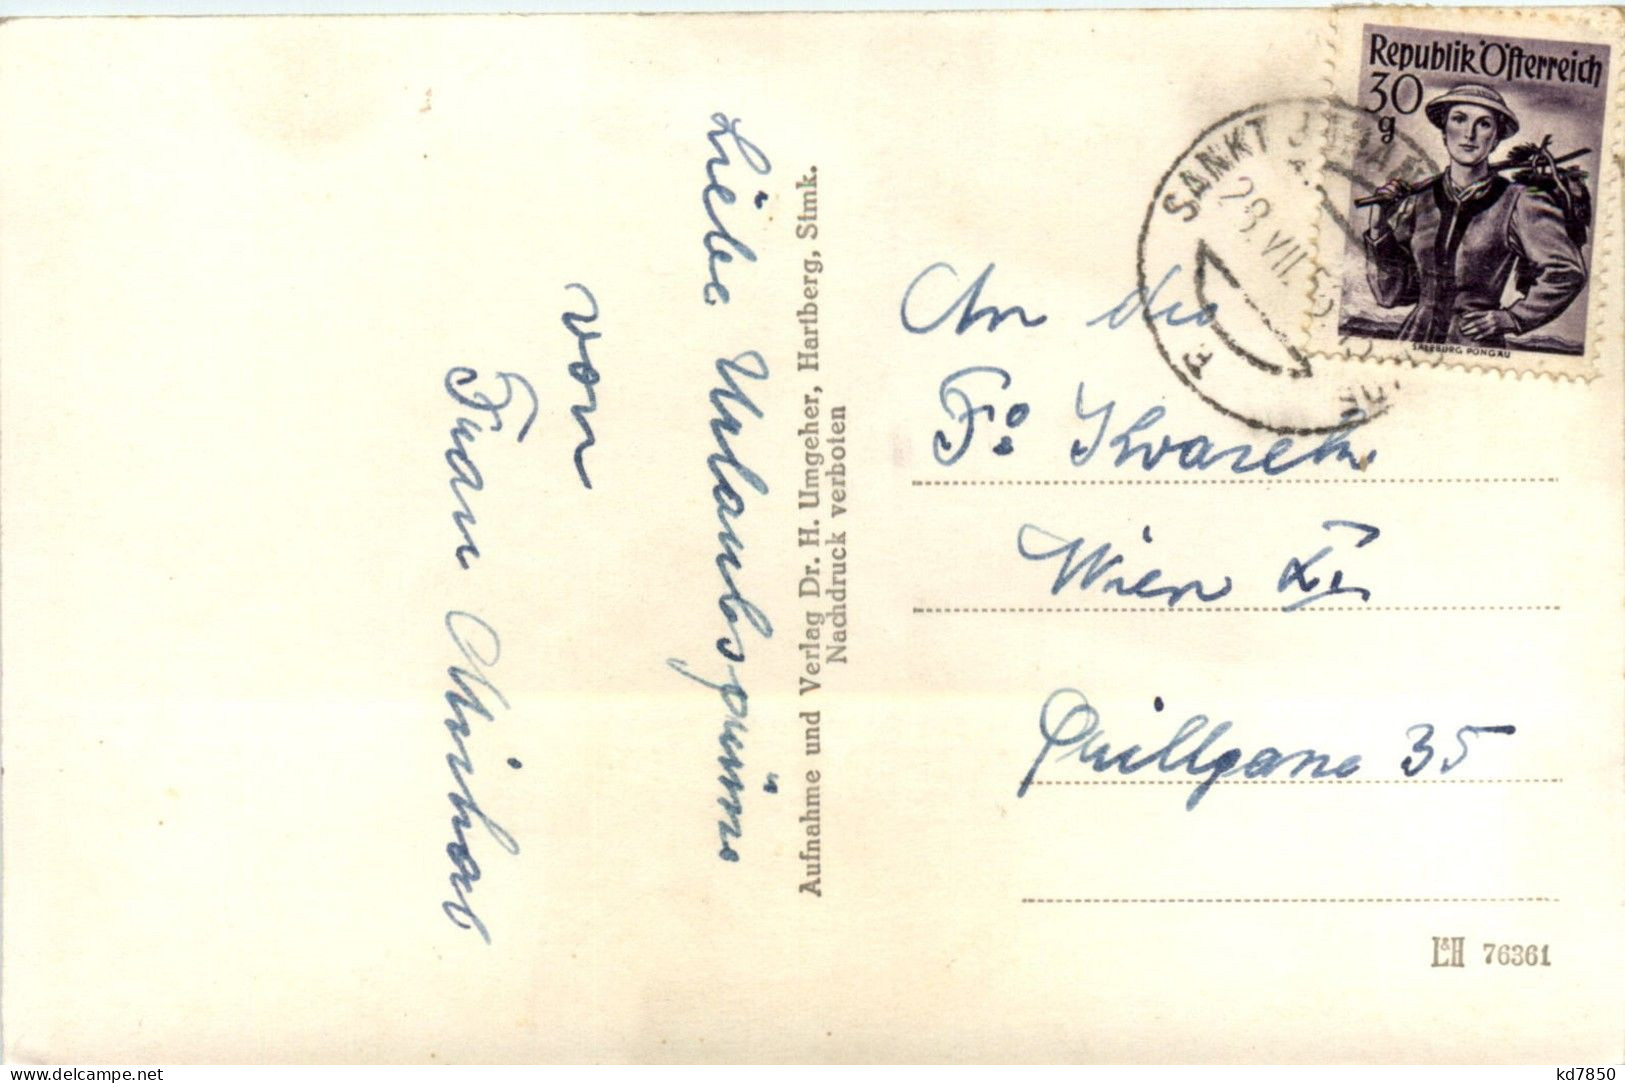 Liebe Urlaubsgrüße
von
Frau
Aufnahme und Verlag Dr. H. Umgeher, Hartberg, Stmk.
Nachdruck verboten
Republik Österreich
30
g
SALZBURG PONGAU
SANKT JOHANN
28.VII.5
An die
Fa
Wien
35
L&H 76361
www.delcampe.net
kd7850